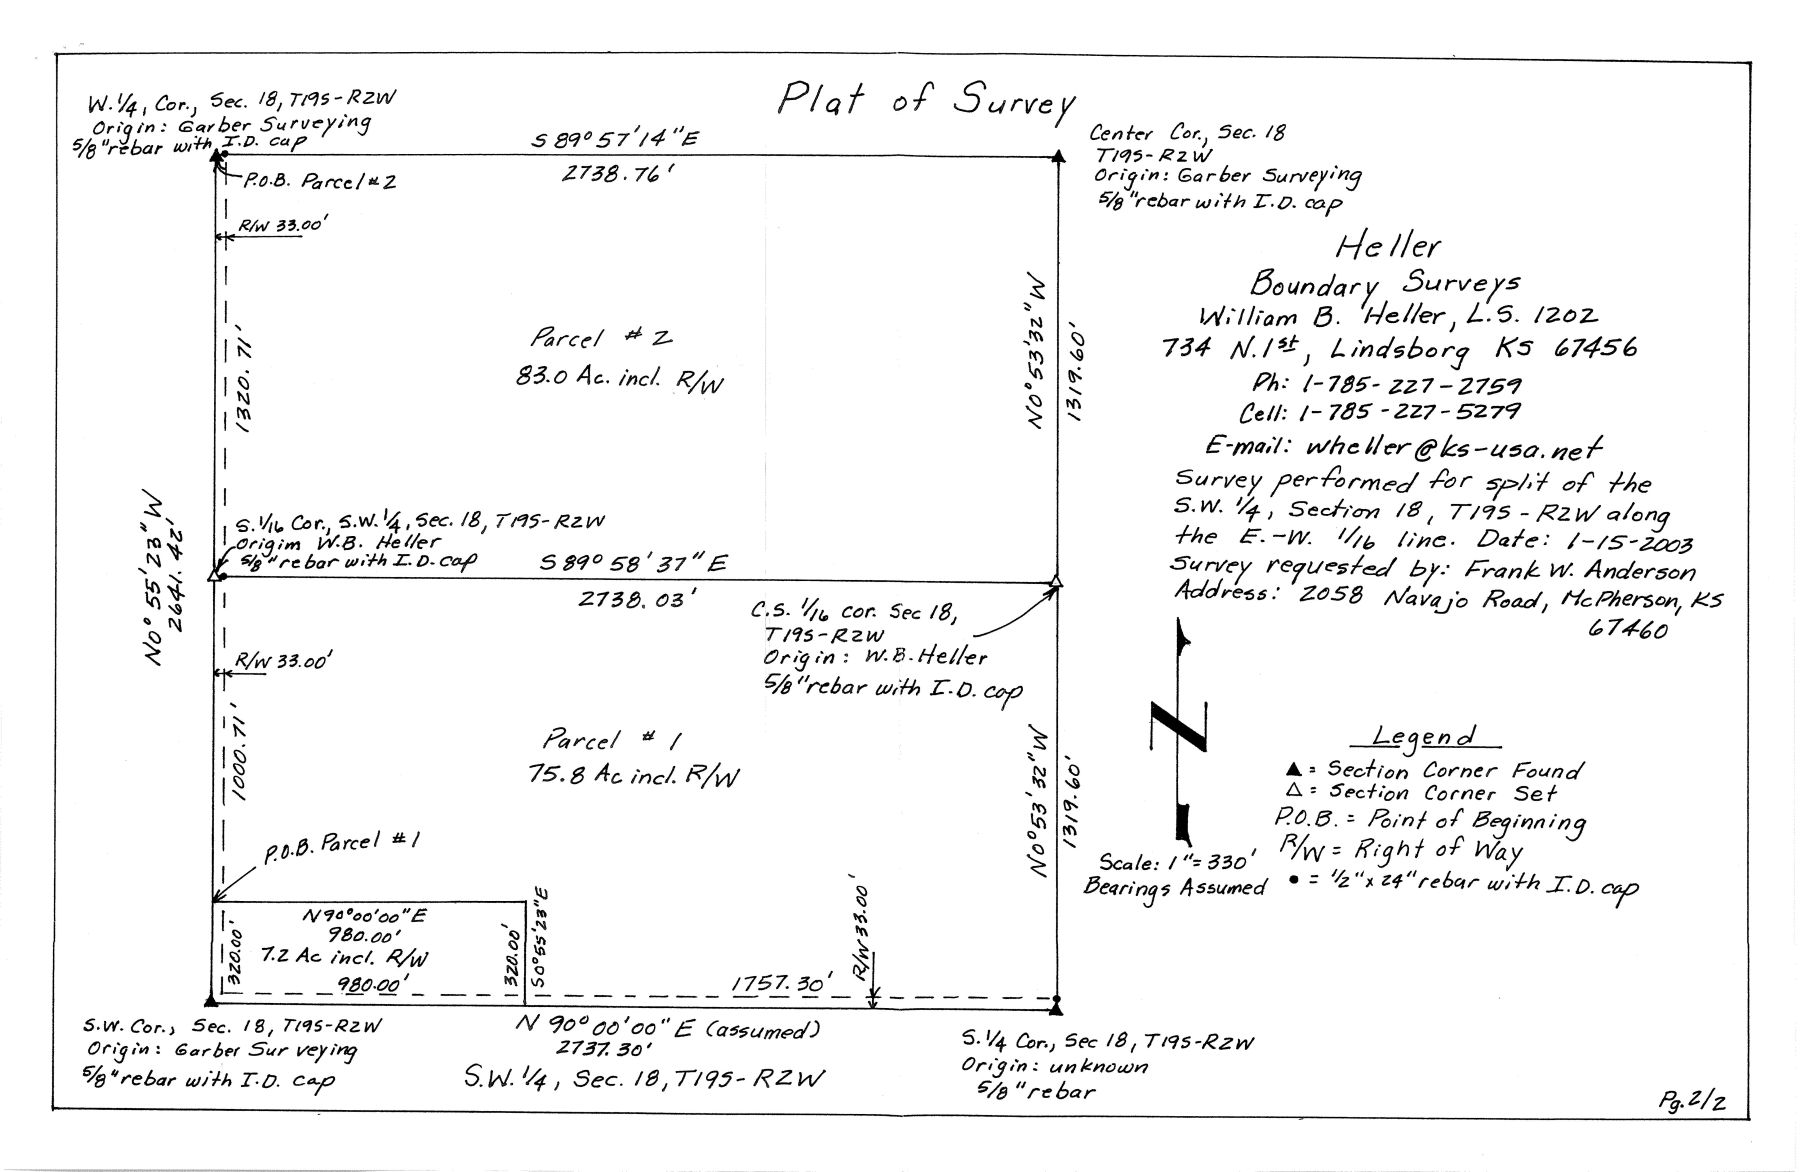 Plat of Survey
W. 1/4, Cor., Sec. 18, T19S-R2W
Origin: Garber Surveying
5/8" rebar with I.D. cap
S 89° 57' 14" E
2738.76'
Center Cor., Sec. 18
T19S-R2W
Origin: Garber Surveying
5/8" rebar with I.D. cap
P.O.B. Parcel #2
R/W 33.00'
1320.71'
Parcel #2
83.0 Ac. incl. R/W
N0° 53' 32" W
1319.60'
Heller
Boundary Surveys
William B. Heller, L.S. 1202
734 N. 1st, Lindsborg KS 67456
Ph: 1-785-227-2759
Cell: 1-785-227-5279
E-mail: wheller@ks-usa.net
Survey performed for split of the
S.W. 1/4, Section 18, T19S-R2W along
the E.-W. 1/16 line. Date: 1-15-2003
Survey requested by: Frank W. Anderson
Address: 2058 Navajo Road, McPherson, KS
67460
N0° 55' 23" W
2641.42'
S. 1/16 Cor., S.W. 1/4, Sec. 18, T19S-R2W
Origim W.B. Heller
5/8" rebar with I.D. cap
S 89° 58' 37" E
2738.03'
C.S. 1/16 cor. Sec 18,
T19S-R2W
Origin: W.B. Heller
5/8" rebar with I.D. cap
R/W 33.00'
1000.71'
Parcel #1
75.8 Ac incl. R/W
N0° 53' 32" W
1319.60'
N
Scale: 1"=330'
Bearings Assumed
Legend
▲ = Section Corner Found
△ = Section Corner Set
P.O.B. = Point of Beginning
R/W = Right of Way
• = 1/2" x 24" rebar with I.D. cap
P.O.B. Parcel #1
N 90° 00' 00" E
980.00'
7.2 Ac incl. R/W
980.00'
320.00'
320.00'
S0° 55' 23" E
1757.30'
R/W 33.00'
S.W. Cor., Sec. 18, T19S-R2W
Origin: Garber Surveying
5/8" rebar with I.D. cap
N 90° 00' 00" E (assumed)
2737.30'
S.W. 1/4, Sec. 18, T19S-R2W
S. 1/4 Cor., Sec 18, T19S-R2W
Origin: unknown
5/8" rebar
Pg. 2/2